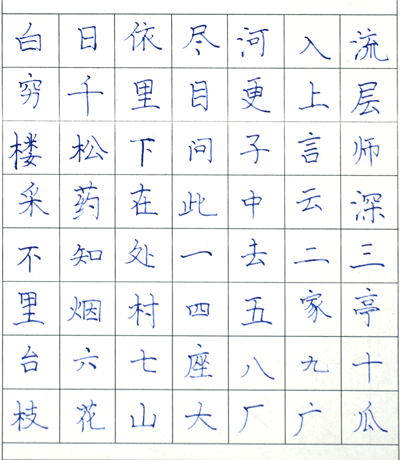 白日依尽河入流
穷千里目更上层
楼松下问子言师
采药在此中云深
不知处一去二三
里烟村四五家亭
台六七座八九十
枝花山大厂广瓜